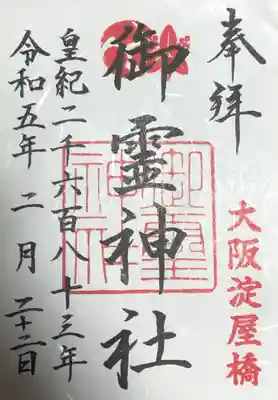 奉拝
大阪淀屋橋
御霊神社
皇紀二千六百八十三年
令和五年二月二十二日